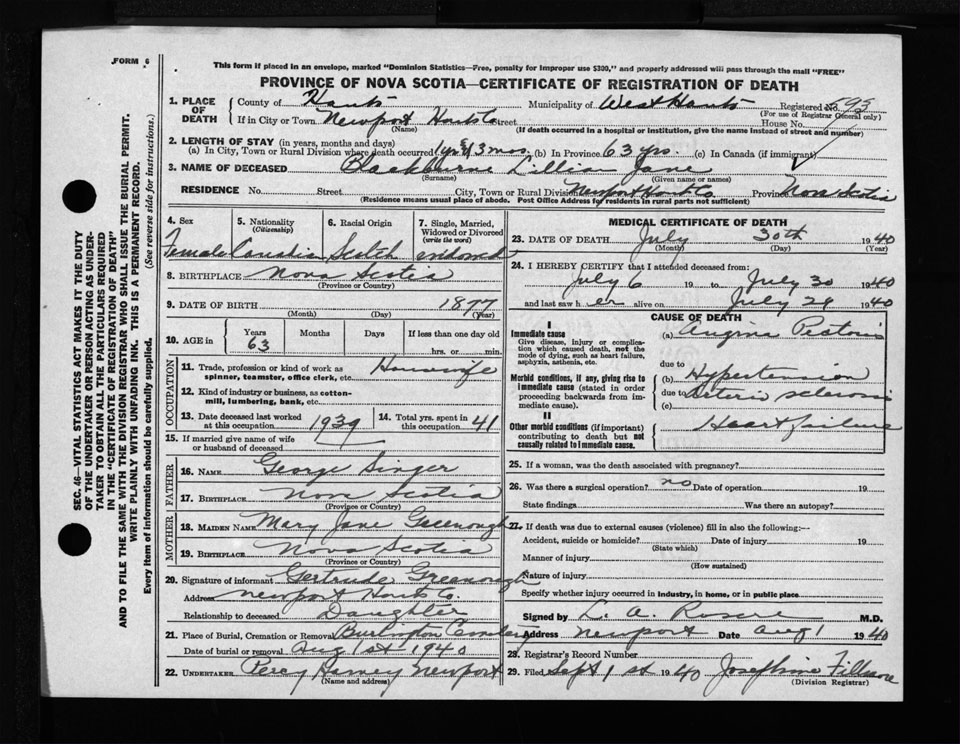 FORM 6
This form if placed in an envelope, marked "Dominion Statistics—Free, penalty for improper use $300," and properly addressed will pass through the mail "FREE"
PROVINCE OF NOVA SCOTIA—CERTIFICATE OF REGISTRATION OF DEATH
1. PLACE OF DEATH County of Hants Municipality of West Hants Registered No. 593
(For use of Registrar General only)
If in City or Town Newport Hants Co Street House No.
(Name) (If death occurred in a hospital or institution, give the name instead of street and number)
2. LENGTH OF STAY (in years, months and days)
(a) In City, Town or Rural Division where death occurred 3 mos. (b) In Province 63 yrs. (c) In Canada (if immigrant)
3. NAME OF DECEASED Blackburne Lillian Jane
(Surname) (Given name or names)
RESIDENCE No. Street City, Town or Rural Division Newport Hants Co. Province Nova Scotia
(Residence means usual place of abode. Post Office Address for residents in rural parts not sufficient)
4. Sex Female
5. Nationality (Citizenship) Canadian
6. Racial Origin Scotch
7. Single, Married, Widowed or Divorced (write the word) widowed
8. BIRTHPLACE Nova Scotia
(Province or Country)
9. DATE OF BIRTH 1877
(Month) (Day) (Year)
10. AGE in Years 63 Months Days If less than one day old hrs. or min.
OCCUPATION
11. Trade, profession or kind of work as spinner, teamster, office clerk, etc. Housewife
12. Kind of industry or business, as cotton-mill, lumbering, bank, etc.
13. Date deceased last worked at this occupation 1939
14. Total yrs. spent in this occupation 41
15. If married give name of wife or husband of deceased
FATHER
16. NAME George Singer
17. BIRTHPLACE Nova Scotia
(Province or Country)
MOTHER
18. MAIDEN NAME Mary Jane Greenough
19. BIRTHPLACE Nova Scotia
(Province or Country)
20. Signature of informant Gertrude Greenough
Address Newport Hants Co.
Relationship to deceased Daughter
21. Place of Burial, Cremation or Removal Burlington Cemetery
Date of burial or removal Aug 1st 1940
22. UNDERTAKER Percy Harvey Newport
(Name and address)
MEDICAL CERTIFICATE OF DEATH
23. DATE OF DEATH July 30th 1940
(Month) (Day)
24. I HEREBY CERTIFY that I attended deceased from:
July 6 19 to July 30 1940
and last saw her alive on July 28 1940
CAUSE OF DEATH
I
Immediate cause (a) Angina Pectoris
Give disease, injury or complication which caused death, not the mode of dying, such as heart failure, asphyxia, asthenia, etc.
due to
Morbid conditions, if any, giving rise to immediate cause (stated in order proceeding backwards from immediate cause).
(b) Hypertension
due to
(c) sclerosis
II
Other morbid conditions (if important) contributing to death but not causally related to immediate cause.
Heart failure
25. If a woman, was the death associated with pregnancy?
26. Was there a surgical operation? no Date of operation 19
State findings Was there an autopsy?
27. If death was due to external causes (violence) fill in also the following:—
Accident, suicide or homicide? Date of injury 19
(State which)
Manner of injury
(How sustained)
Nature of injury
Specify whether injury occurred in industry, in home, or in public place
Signed by L. A. M.D.
Address Newport Date Aug 1 1940
28. Registrar's Record Number
29. Filed Sept 1st 1940 Josephine Fillmore
(Division Registrar)
SEC. 46—VITAL STATISTICS ACT MAKES IT THE DUTY
OF THE UNDERTAKER OR PERSON ACTING AS UNDER-
TAKER TO OBTAIN ALL THE PARTICULARS REQUIRED
IN THE "CERTIFICATE OF REGISTRATION OF DEATH"
AND TO FILE THE SAME WITH THE DIVISION REGISTRAR WHO SHALL ISSUE THE BURIAL PERMIT.
WRITE PLAINLY WITH UNFADING INK. THIS IS A PERMANENT RECORD.
Every item of information should be carefully supplied. (See reverse side for instructions.)